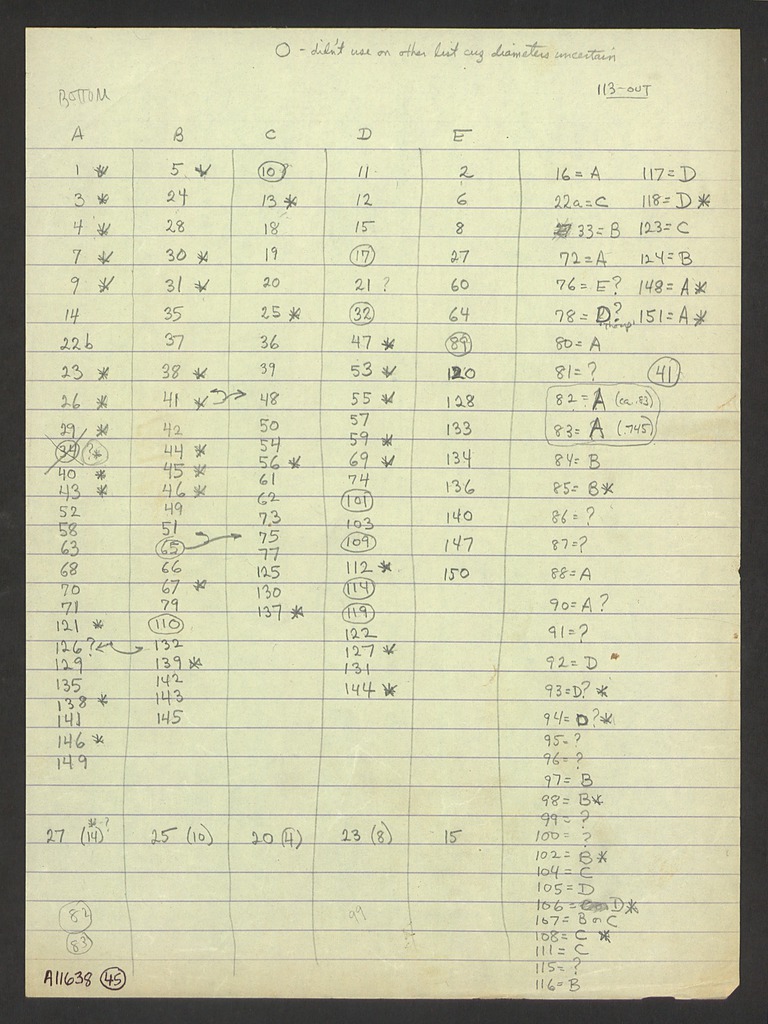 O - didn't use on other list cuz diameters uncertain
113-OUT
BOTTOM
A B C D E
1 * 5 * 10? 11 2 16 = A 117 = D
3 * 24 13 * 12 6 22a = C 118 = D *
4 * 28 18 15 8 33 = B 123 = C
7 * 30 * 19 17 27 72 = A 124 = B
9 * 31 * 20 21 ? 60 76 = E? 148 = A *
14 35 25 * 32 64 78 = D? 151 = A *
22b 37 36 47 * 89 80 = A
23 * 38 * 39 53 * 120 81 = ? 41
26 * 41 * 48 55 * 128 82 = A (ca .83)
29 * 42 50 57 133 83 = A (.745)
34 ?* 44 * 54 59 * 134 84 = B
40 * 45 * 56 * 69 * 136 85 = B *
43 * 46 * 61 74 140 86 = ?
52 49 62 101 147 87 = ?
58 51 73 103 150 88 = A
63 65 75 109 90 = A ?
68 66 77 112 * 91 = ?
70 67 * 125 114 92 = D
71 79 130 119 93 = D? *
121 * 110 137 * 122 94 = D? *
126 ? 132 127 * 95 = ?
129 139 * 131 96 = ?
135 142 144 * 97 = B
138 * 143 98 = B *
141 145 99 = ?
146 * 100 = ?
149 102 = B *
27 (14) *? 25 (10) 20 (4) 23 (8) 15 104 = C
105 = D
106 = D *
82 99 107 = B or C
83 108 = C *
111 = C
115 = ?
116 = B
A11638 45